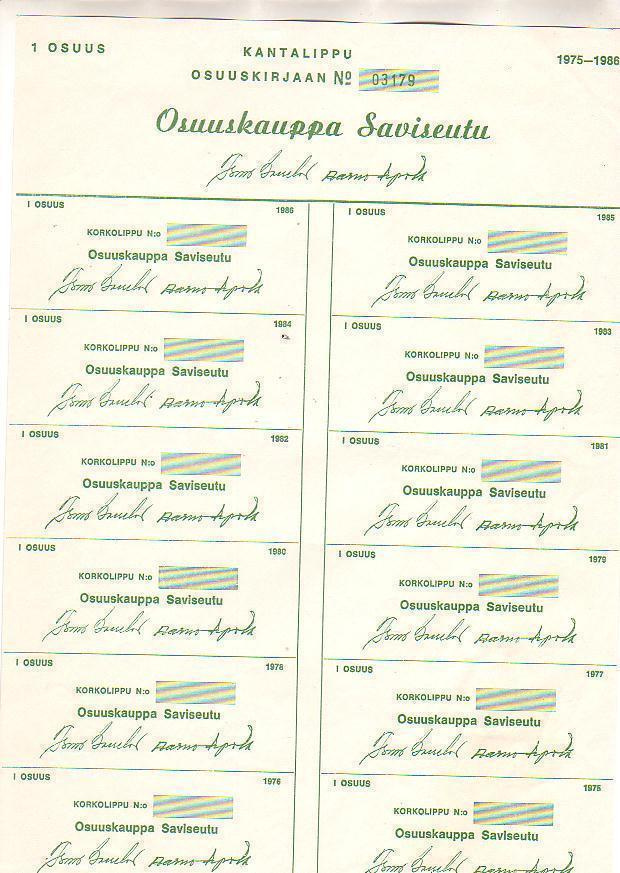 1 OSUUS
KANTALIPPU
1975—1986
OSUUSKIRJAAN № 03179
Osuuskauppa Saviseutu
1 OSUUS 1986
KORKOLIPPU N:o
Osuuskauppa Saviseutu
1 OSUUS 1985
KORKOLIPPU N:o
Osuuskauppa Saviseutu
1 OSUUS 1984
KORKOLIPPU N:o
Osuuskauppa Saviseutu
1 OSUUS 1983
KORKOLIPPU N:o
Osuuskauppa Saviseutu
1 OSUUS 1982
KORKOLIPPU N:o
Osuuskauppa Saviseutu
1 OSUUS 1981
KORKOLIPPU N:o
Osuuskauppa Saviseutu
1 OSUUS 1980
KORKOLIPPU N:o
Osuuskauppa Saviseutu
1 OSUUS 1979
KORKOLIPPU N:o
Osuuskauppa Saviseutu
1 OSUUS 1978
KORKOLIPPU N:o
Osuuskauppa Saviseutu
1 OSUUS 1977
KORKOLIPPU N:o
Osuuskauppa Saviseutu
1 OSUUS 1976
KORKOLIPPU N:o
Osuuskauppa Saviseutu
1 OSUUS 1975
KORKOLIPPU N:o
Osuuskauppa Saviseutu